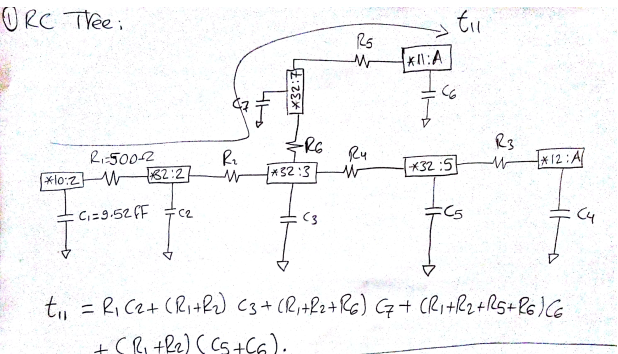 ① RC Tree:
t11
R5
*11:A
*32:7
C7
C6
R6
R1=500Ω
R2
R4
R3
*10:2
*32:2
*32:3
*32:5
*12:A
C1=9.52fF
C2
C3
C5
C4
t11 = R1C2+(R1+R2) C3+(R1+R2+R6) C7+(R1+R2+R5+R6)C6
+(R1+R2)(C5+C6).